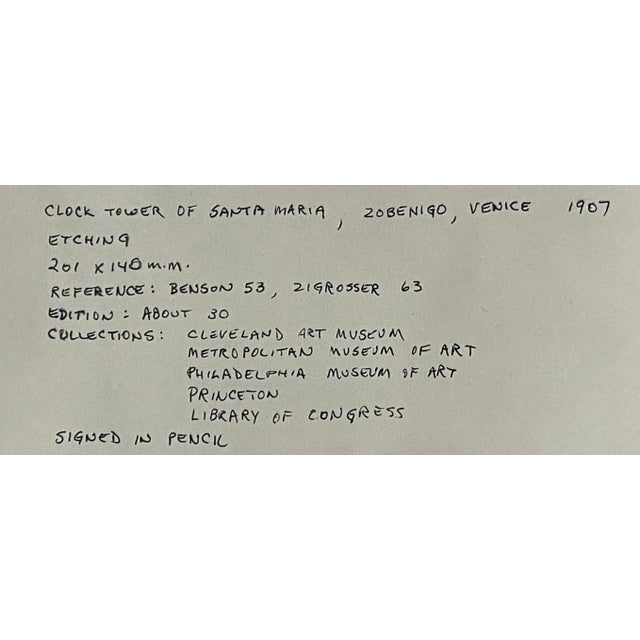 CLOCK TOWER OF SANTA MARIA, ZOBENIGO, VENICE 1907
ETCHING
201 X 140 m.m.
REFERENCE: BENSON 53, ZIGROSSER 63
EDITION: ABOUT 30
COLLECTIONS: CLEVELAND ART MUSEUM
METROPOLITAN MUSEUM OF ART
PHILADELPHIA MUSEUM OF ART
PRINCETON
LIBRARY OF CONGRESS
SIGNED IN PENCIL